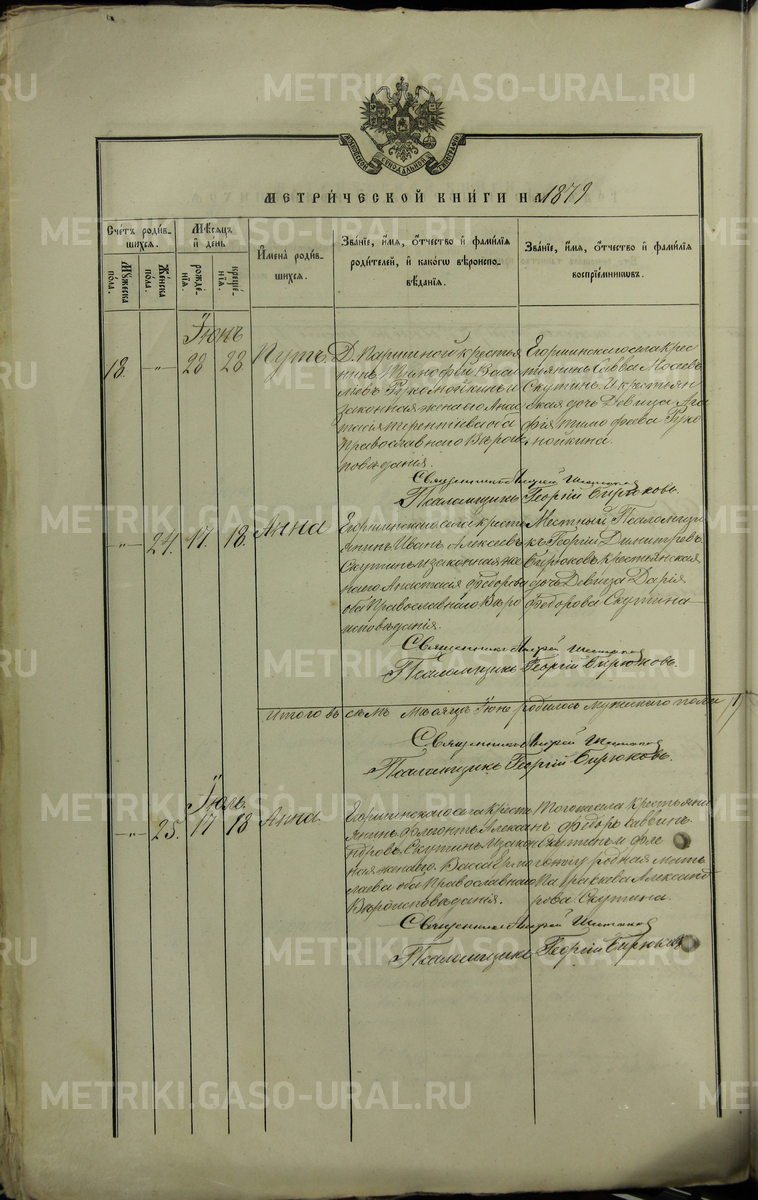 METRIKI.GASO-URAL.RU
МОСКОВСКОЙ СѴНОДАЛЬНОЙ ТИПОГРАФІИ
МЕТРИ́ЧЕСКОЙ КНИ́ГИ НА 1879
Сче́тъ роди́в-
шихся.
Мꙋ́жеска
по́ла.
Же́нска
по́ла.
Мѣ́сяцъ
и҆ де́нь
рожде́-
нїѧ.
креще́-
нїѧ.
И҆мена̀ роди́в-
шихся.
Зва́нїе, и҆́мѧ, ѻ҆́тчество и҆ фами́лїѧ
роди́телей, и҆ какѡ́гѡ вѣроиспо-
вѣ́данїѧ.
Зва́нїе, и҆́мѧ, ѻ҆́тчество и҆ фами́лїѧ
воспрїе́мникѡвъ.
Іюнь
18. — 28 28
Д. Паршиной крестья
нинъ Тимофей Васи
льевъ Рукомойкинъ и
законная жена его Анас
тасія Терентьева оба
Православнаго Вѣроис
повѣданія.
Егоршинскаго села крес
тьянинъ Савва Моѳеевъ
Скутинъ и крестьян
ская дочь Девица Ага
фія Тимофеева Руко
мойкина.
Священникъ Андрей
Псаломщикъ Георгій Бирюковъ.
— 24. 17. 18. Анна
Егоршинскаго села кресть
янинъ Иванъ Алексѣевъ
Скутинъ и законная же
на его Анастасія Федорова
оба Православнаго Вѣро
исповѣданія.
Местный Псаломщи
къ Георгій Димитріевъ
Бирюковъ, крестьянская
дочь Девица Дарія
Федорова Скутина
Священникъ Андрей
Псаломщикъ Георгій Бирюковъ.
Итого въ семъ мѣсяцѣ Іюнѣ родилось мужескаго пола
Священникъ Андрей
Псаломщикъ Георгій Бирюковъ.
Іюль
— 25. 17 18 Анна
Егоршинскаго села кресть
янинъ Флегонтъ Алексан
дровъ Скутинъ и закон
ная жена его Васса Ермо
лаева оба Православнаго
Вѣроисповѣданія.
Того же села Крестьяни
нъ Федоръ Саввинъ
Скутинъ и Фле
гонту родная мать
Параскева Александ
рова Скутина.
Священникъ Андрей
Псаломщикъ Георгій Бирюковъ